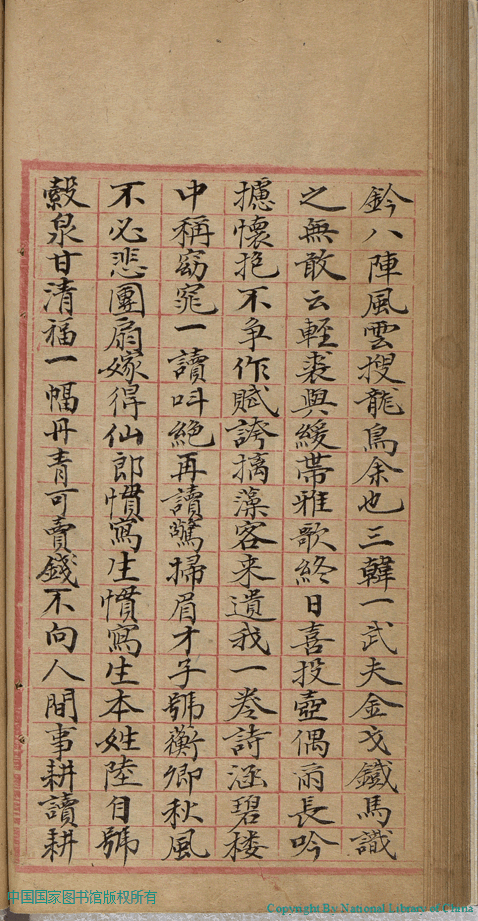 鈐八陣風雲搜龍鳥余也三韓一武夫金戈鐵馬識
之無敢云輕裘與緩帶雅歌終日喜投壺偶爾長吟
攄懷抱不争作賦誇摛藻客来遺我一卷詩涵碧樓
中稱窈窕一讀叫絶再讀驚掃眉才子號蘅卿秋風
不必悲團扇嫁得仙郎慣寫生慣寫生本姓陸自號
穀泉甘清福一幅丹青可賣錢不向人間事耕讀耕
中国国家图书馆版权所有
Copyright By National Library of China